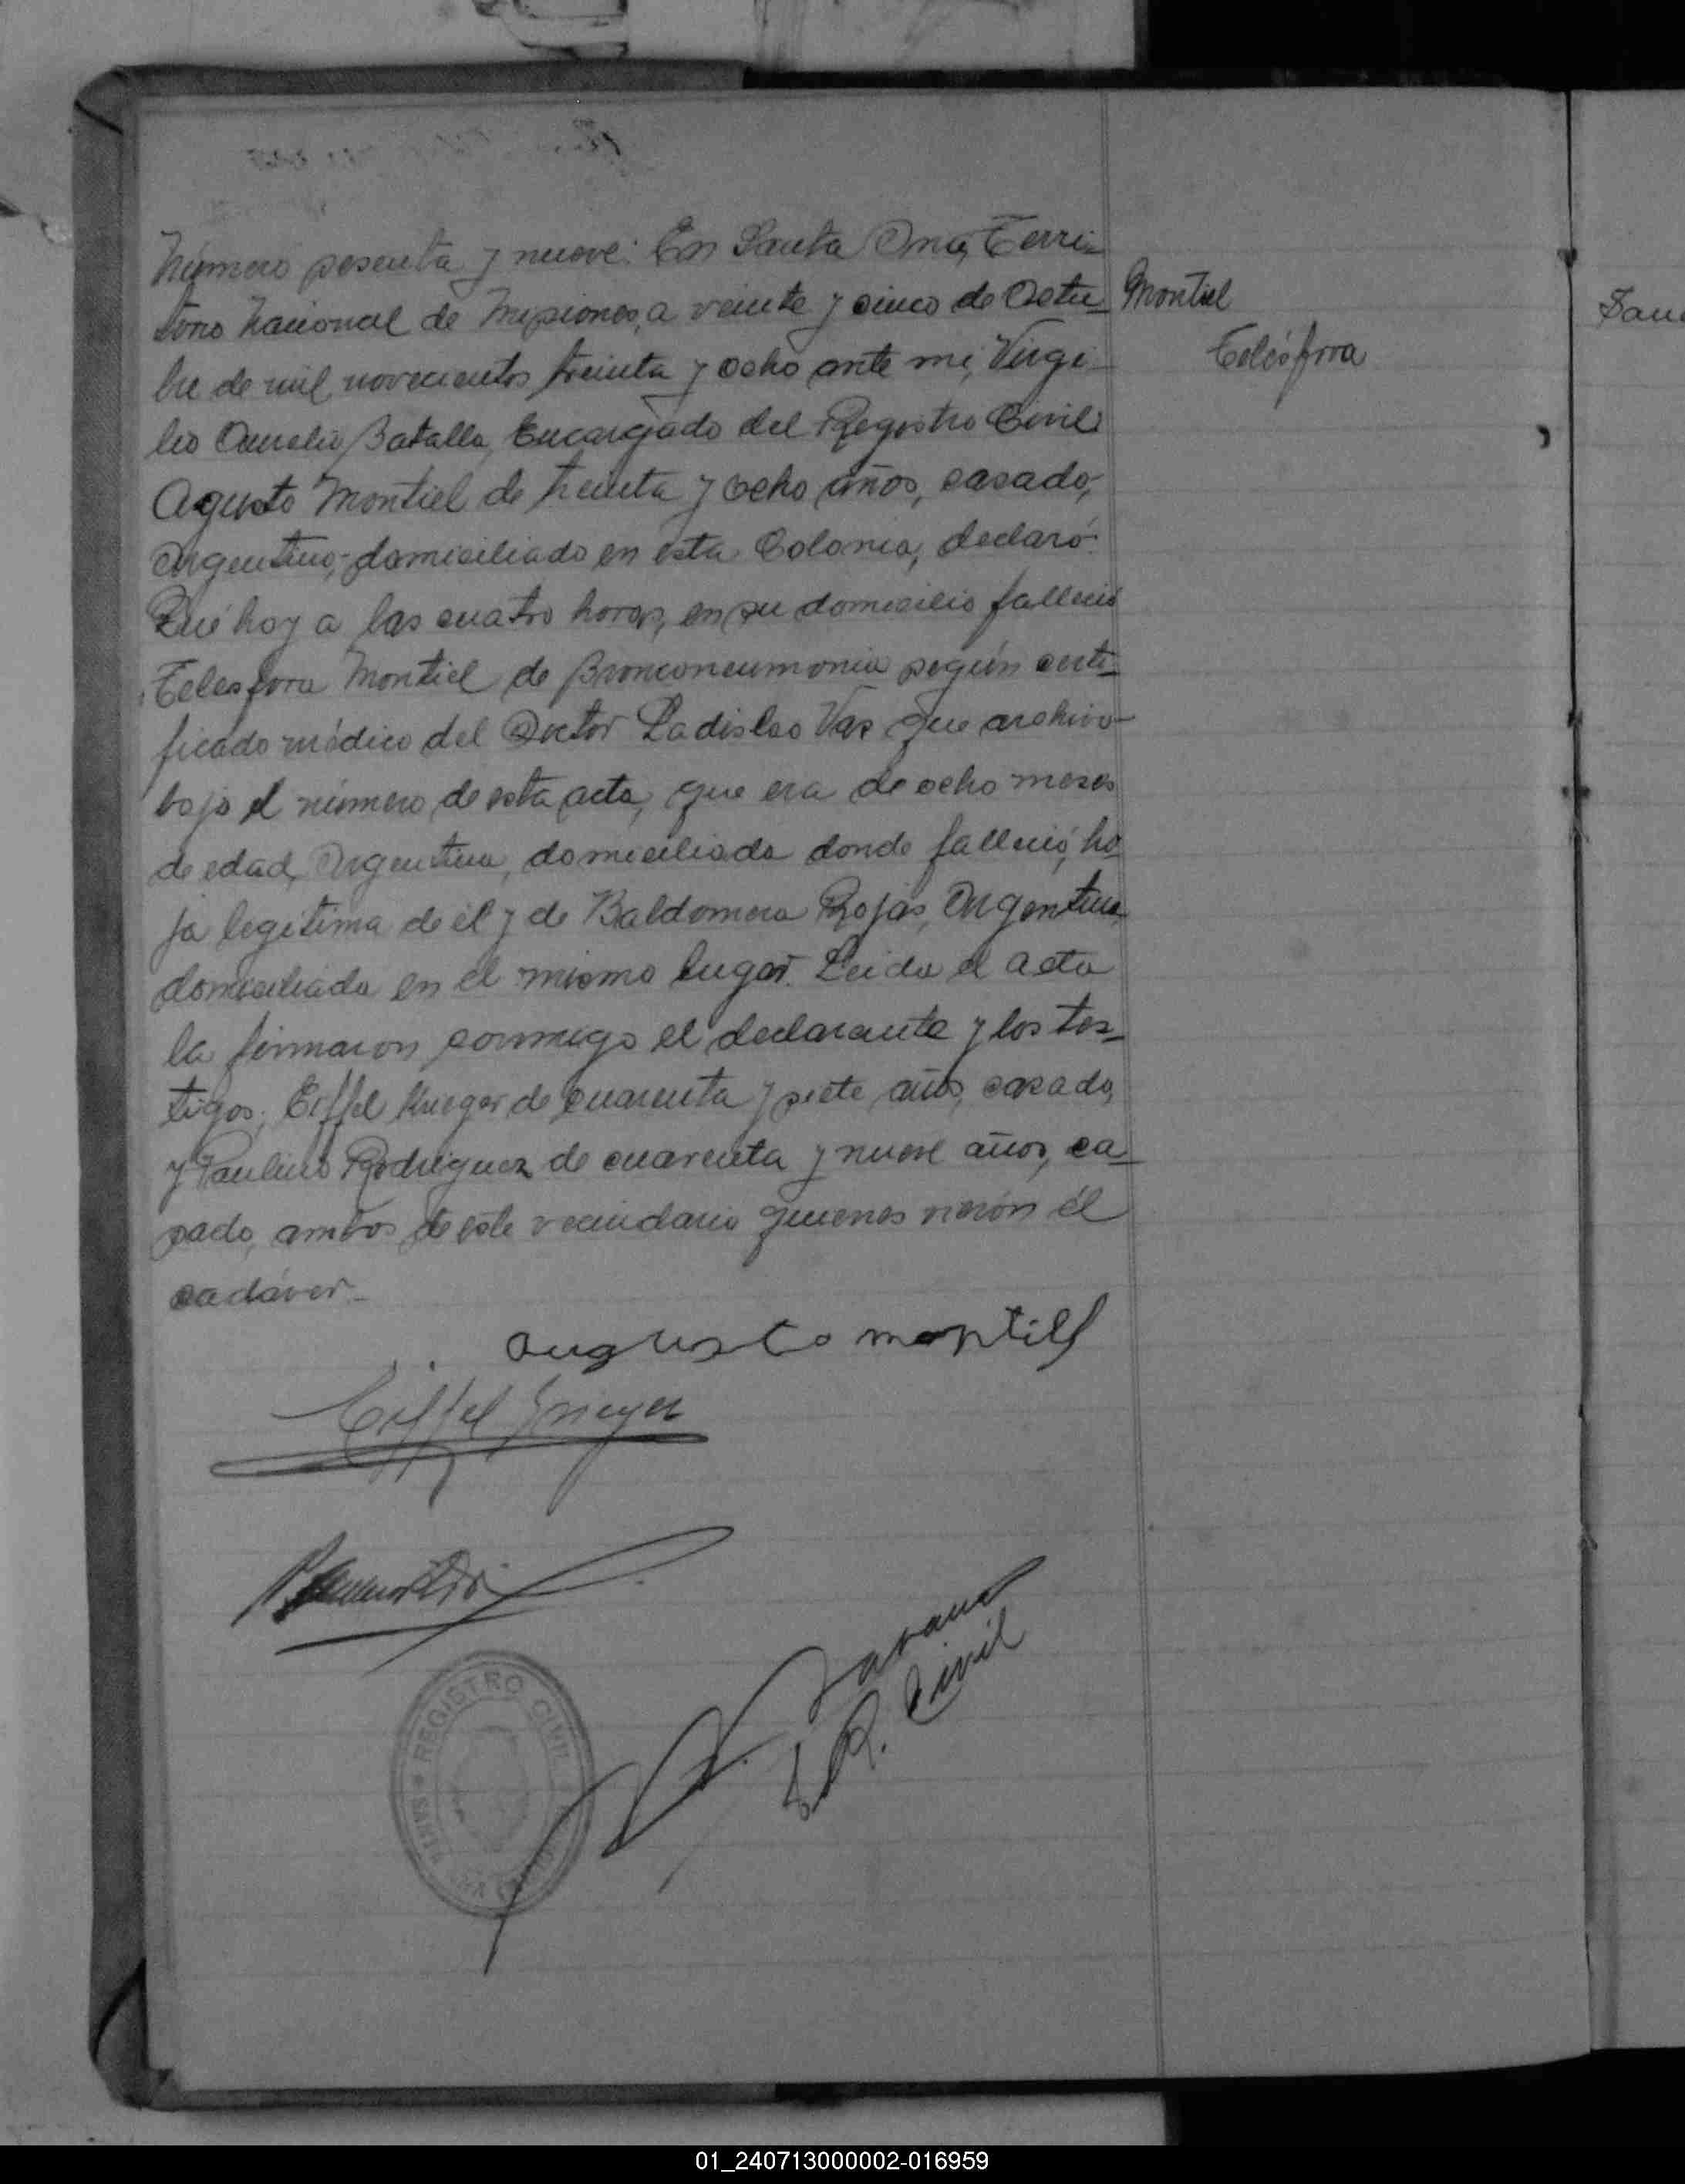 Número sesenta y nueve: En Santa Ana, Terri-
torio Nacional de Misiones, a veinte y cinco de Octu-
bre de mil novecientos treinta y ocho ante mi, Virgi-
lio Aurelio Batalla, Encargado del Registro Civil
Agusto Montiel de treinta y ocho años, casado,
Argentino, domiciliado en esta Colonia, declaró:
Que hoy a las cuatro horas, en su domicilio falleció
Telesfora Montiel de Bronconeumonia según certi-
ficado médico del Doctor Ladislao Vas que archivo
bajo el número de esta acta, que era de ocho meses
de edad, Argentina, domiciliada donde falleció, hi-
ja legitima de él y de Baldomera Rojas, Argentina,
domiciliada en el mismo lugar. Leida el acta
la firmaron conmigo el declarante y los tes-
tigos, Eiffel Krieger de cuarenta y siete años, casado,
y Paulino Rodriguez de cuarenta y nueve años, ca-
sado, ambos de este vecindario quienes vieron él
cadáver.-
Montiel
Telésfora
augusto montiel
Eiffel Krieger
E. R. Civil
REGISTRO CIVIL
01_240713000002-016959